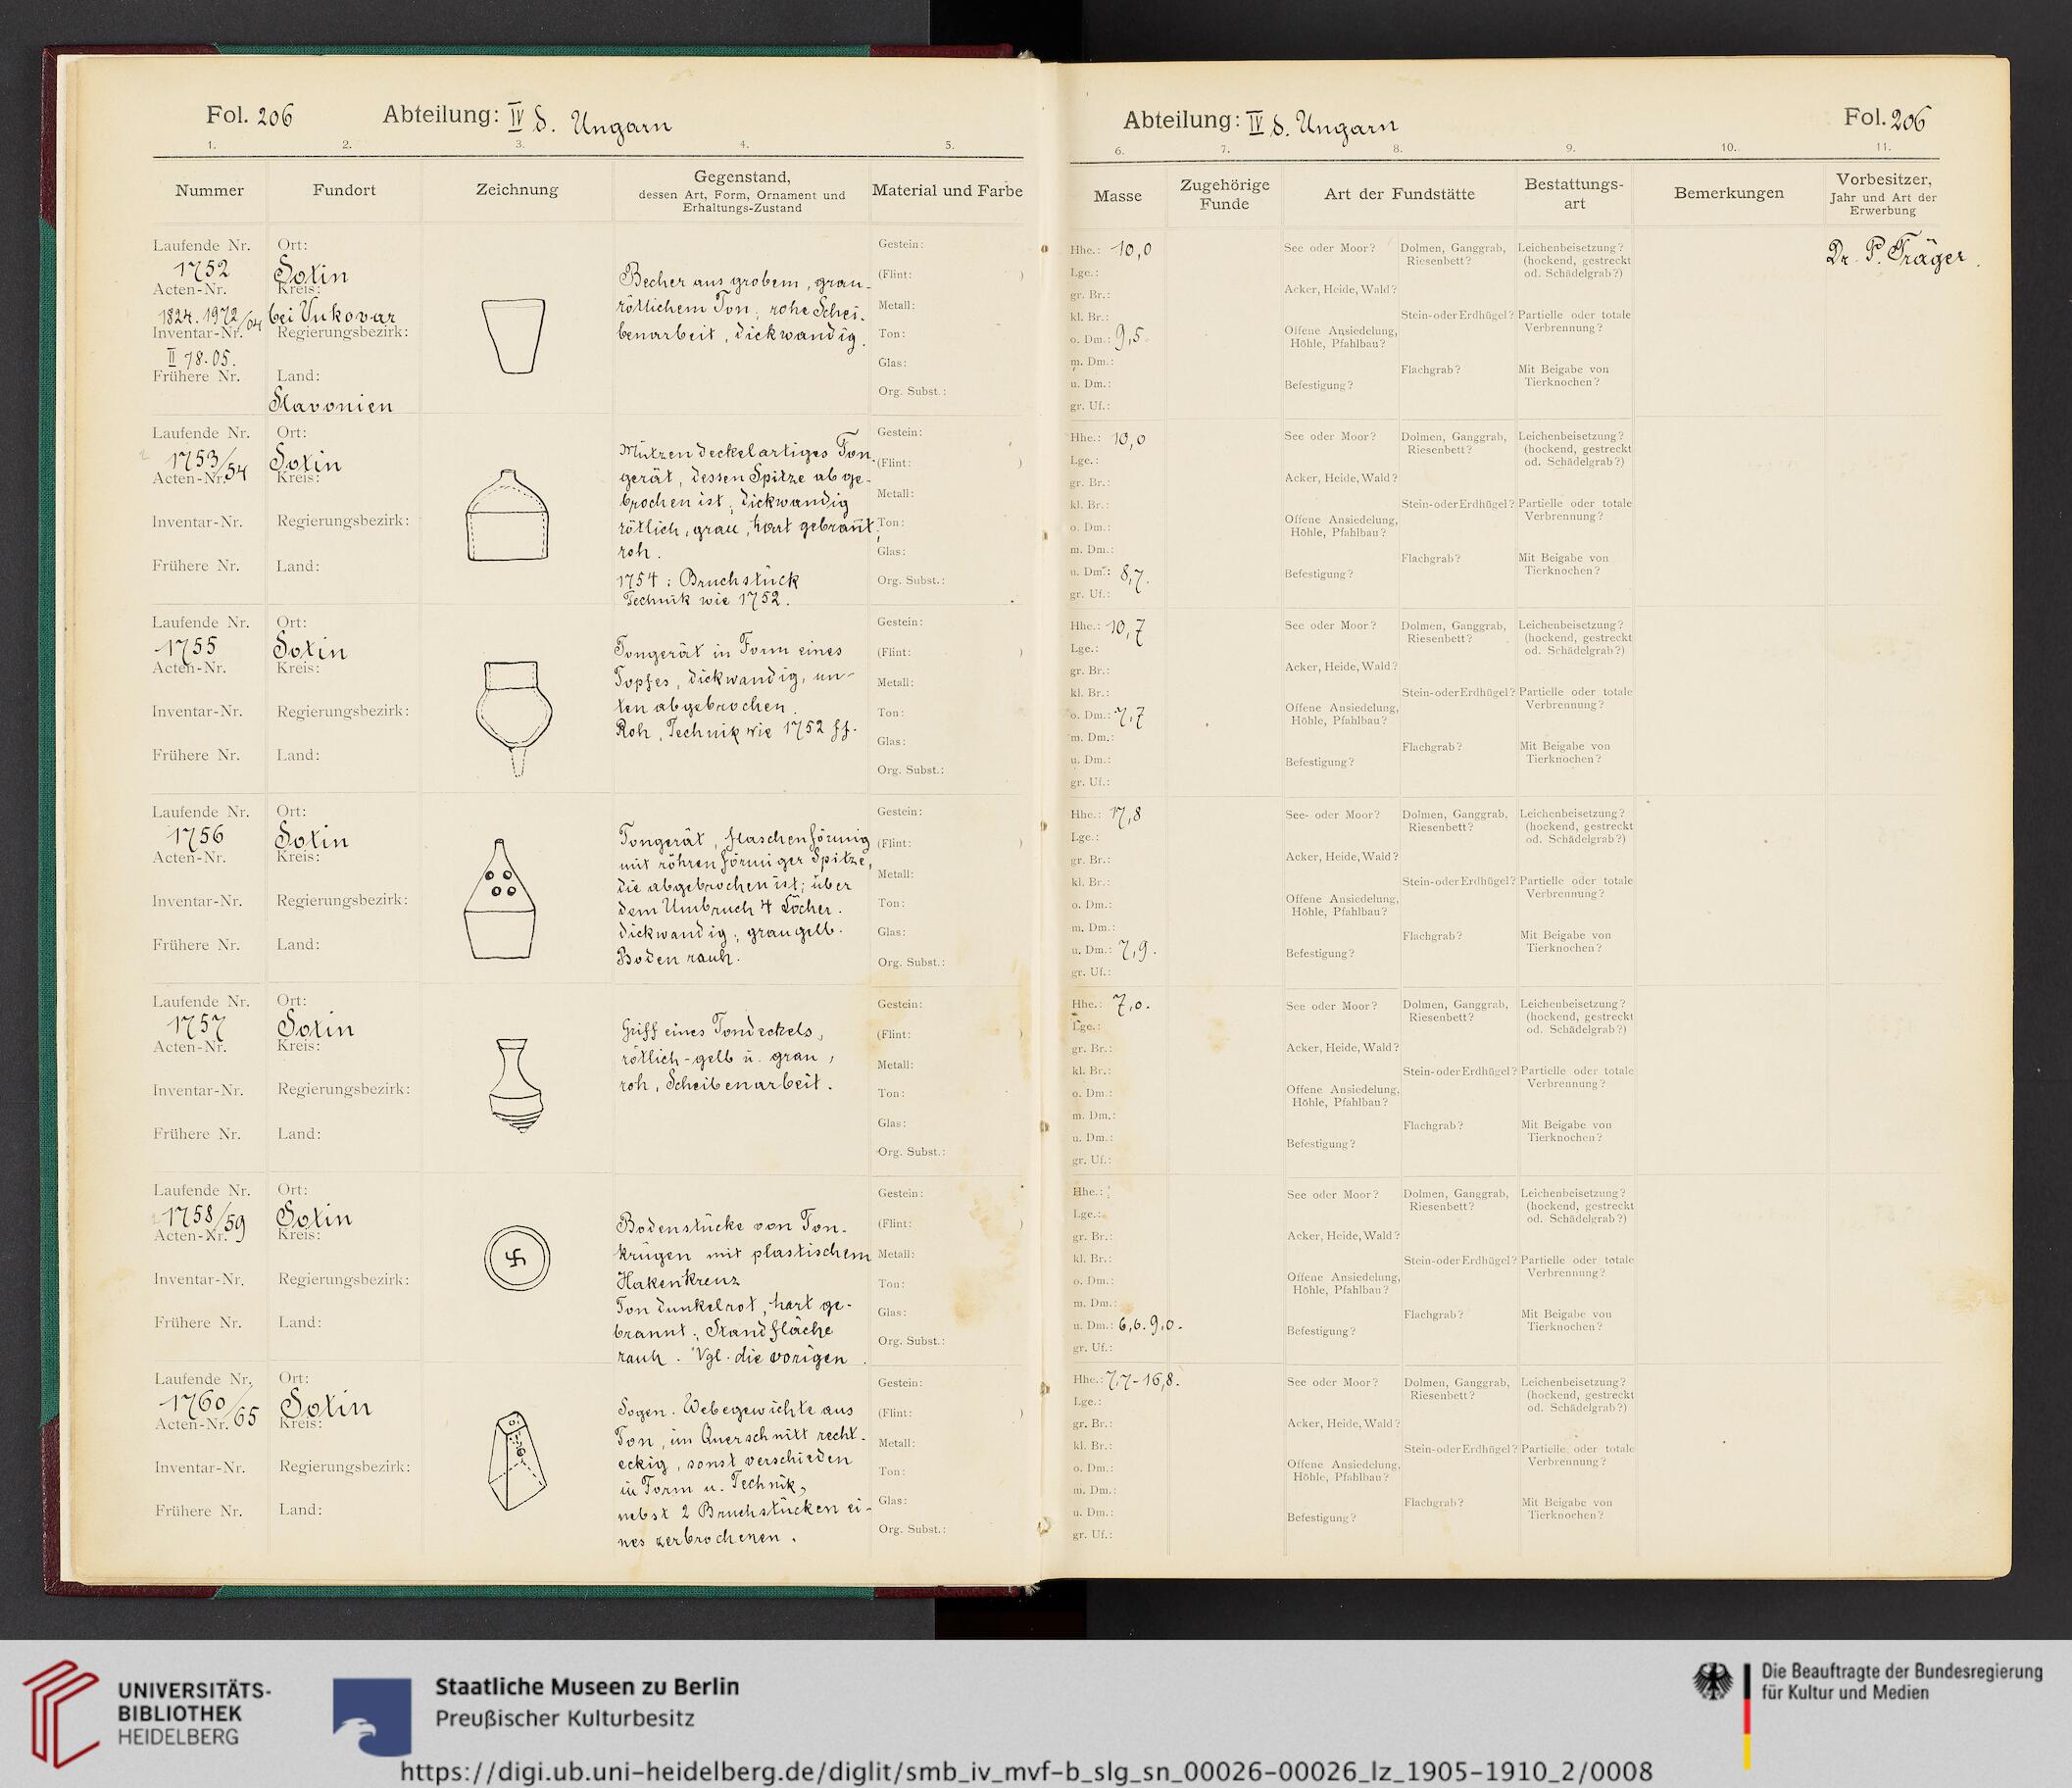 Fol. 206 Abteilung: IV d. Ungarn
1. 2. 3. 4. 5.
Nummer Fundort Zeichnung Gegenstand, Material und Farbe
dessen Art, Form, Ornament und
Erhaltungs-Zustand
Laufende Nr. 1752
Acten-Nr. 1824. 1972/04
Inventar-Nr. II 78.05.
Frühere Nr.
Ort: Sotin
Kreis: bei Vukovar
Regierungsbezirk:
Land: Slavonien
Becher aus grobem, grau-
rötlichem Ton, rohe Schei-
benarbeit, dickwandig.
Gestein:
(Flint: )
Metall:
Ton:
Glas:
Org. Subst.:
Laufende Nr. 1753/54
Acten-Nr.
Inventar-Nr.
Frühere Nr.
Ort: Sotin
Kreis:
Regierungsbezirk:
Land:
Mützendeckelartiges Ton-
gerät, dessen Spitze abge-
brochen ist; dickwandig
rötlich, grau, hart gebrannt;
roh.
1754: Bruchstück
Technik wie 1752.
Gestein:
(Flint: )
Metall:
Ton:
Glas:
Org. Subst.:
Laufende Nr. 1755
Acten-Nr.
Inventar-Nr.
Frühere Nr.
Ort: Sotin
Kreis:
Regierungsbezirk:
Land:
Tongerät in Form eines
Topfes, dickwandig, un-
ten abgebrochen.
Roh, Technik wie 1752 ff.
Gestein:
(Flint: )
Metall:
Ton:
Glas:
Org. Subst.:
Laufende Nr. 1756
Acten-Nr.
Inventar-Nr.
Frühere Nr.
Ort: Sotin
Kreis:
Regierungsbezirk:
Land:
Tongerät, flaschenförmig
mit röhrenförmiger Spitze,
die abgebrochen ist; über
dem Umbruch 4 Löcher.
dickwandig; graugelb.
Boden rauh.
Gestein:
(Flint: )
Metall:
Ton:
Glas:
Org. Subst.:
Laufende Nr. 1757
Acten-Nr.
Inventar-Nr.
Frühere Nr.
Ort: Sotin
Kreis:
Regierungsbezirk:
Land:
Griff eines Tondeckels,
rötlich-gelb u. grau,
roh, Scheibenarbeit.
Gestein:
(Flint: )
Metall:
Ton:
Glas:
Org. Subst.:
Laufende Nr. 1758/59
Acten-Nr.
Inventar-Nr.
Frühere Nr.
Ort: Sotin
Kreis:
Regierungsbezirk:
Land:
Bodenstücke von Ton-
krügen mit plastischem
Hakenkreuz
Ton dunkelrot, hart ge-
brannt; Standfläche
rauh. Vgl. die vorigen.
Gestein:
(Flint: )
Metall:
Ton:
Glas:
Org. Subst.:
Laufende Nr. 1760/65
Acten-Nr.
Inventar-Nr.
Frühere Nr.
Ort: Sotin
Kreis:
Regierungsbezirk:
Land:
Sogen. Webegewichte aus
Ton, im Querschnitt recht-
eckig, sonst verschieden
in Form u. Technik,
nebst 2 Bruchstücken ei-
nes zerbrochenen.
Gestein:
(Flint: )
Metall:
Ton:
Glas:
Org. Subst.:
Abteilung: IV d. Ungarn Fol. 206
6. 7. 8. 9. 10. 11.
Masse Zugehörige Funde Art der Fundstätte Bestattungs-art Bemerkungen Vorbesitzer,
Jahr und Art der
Erwerbung
Hhe.: 10,0
Lge.:
gr. Br.:
kl. Br.:
o. Dm.: 9,5
m. Dm.:
u. Dm.:
gr. Uf.:
See oder Moor?
Acker, Heide, Wald?
Offene Ansiedelung,
Höhle, Pfahlbau?
Befestigung?
Dolmen, Ganggrab,
Riesenbett?
Stein- oder Erdhügel?
Flachgrab?
Leichenbeisetzung?
(hockend, gestreckt
od. Schädelgrab?)
Partielle oder totale
Verbrennung?
Mit Beigabe von
Tierknochen?
Dr. P. Träger.
Hhe.: 10,0
Lge.:
gr. Br.:
kl. Br.:
o. Dm.:
m. Dm.:
u. Dm.: 8,7.
gr. Uf.:
See oder Moor?
Acker, Heide, Wald?
Offene Ansiedelung,
Höhle, Pfahlbau?
Befestigung?
Dolmen, Ganggrab,
Riesenbett?
Stein- oder Erdhügel?
Flachgrab?
Leichenbeisetzung?
(hockend, gestreckt
od. Schädelgrab?)
Partielle oder totale
Verbrennung?
Mit Beigabe von
Tierknochen?
Hhe.: 10,7
Lge.:
gr. Br.:
kl. Br.:
o. Dm.: 7,7
m. Dm.:
u. Dm.:
gr. Uf.:
See oder Moor?
Acker, Heide, Wald?
Offene Ansiedelung,
Höhle, Pfahlbau?
Befestigung?
Dolmen, Ganggrab,
Riesenbett?
Stein- oder Erdhügel?
Flachgrab?
Leichenbeisetzung?
(hockend, gestreckt
od. Schädelgrab?)
Partielle oder totale
Verbrennung?
Mit Beigabe von
Tierknochen?
Hhe.: 17,8
Lge.:
gr. Br.:
kl. Br.:
o. Dm.:
m. Dm.:
u. Dm.: 7,9.
gr. Uf.:
See- oder Moor?
Acker, Heide, Wald?
Offene Ansiedelung,
Höhle, Pfahlbau?
Befestigung?
Dolmen, Ganggrab,
Riesenbett?
Stein- oder Erdhügel?
Flachgrab?
Leichenbeisetzung?
(hockend, gestreckt
od. Schädelgrab?)
Partielle oder totale
Verbrennung?
Mit Beigabe von
Tierknochen?
Hhe.: 7,0.
Lge.:
gr. Br.:
kl. Br.:
o. Dm.:
m. Dm.:
u. Dm.:
gr. Uf.:
See oder Moor?
Acker, Heide, Wald?
Offene Ansiedelung,
Höhle, Pfahlbau?
Befestigung?
Dolmen, Ganggrab,
Riesenbett?
Stein- oder Erdhügel?
Flachgrab?
Leichenbeisetzung?
(hockend, gestreckt
od. Schädelgrab?)
Partielle oder totale
Verbrennung?
Mit Beigabe von
Tierknochen?
Hhe.:
Lge.:
gr. Br.:
kl. Br.:
o. Dm.:
m. Dm.:
u. Dm.: 6,6. 9,0.
gr. Uf.:
See oder Moor?
Acker, Heide, Wald?
Offene Ansiedelung,
Höhle, Pfahlbau?
Befestigung?
Dolmen, Ganggrab,
Riesenbett?
Stein- oder Erdhügel?
Flachgrab?
Leichenbeisetzung?
(hockend, gestreckt
od. Schädelgrab?)
Partielle oder totale
Verbrennung?
Mit Beigabe von
Tierknochen?
Hhe.: 7,7-16,8.
Lge.:
gr. Br.:
kl. Br.:
o. Dm.:
m. Dm.:
u. Dm.:
gr. Uf.:
See oder Moor?
Acker, Heide, Wald?
Offene Ansiedelung,
Höhle, Pfahlbau?
Befestigung?
Dolmen, Ganggrab,
Riesenbett?
Stein- oder Erdhügel?
Flachgrab?
Leichenbeisetzung?
(hockend, gestreckt
od. Schädelgrab?)
Partielle oder totale
Verbrennung?
Mit Beigabe von
Tierknochen?
UNIVERSITÄTS-
BIBLIOTHEK
HEIDELBERG
Staatliche Museen zu Berlin
Preußischer Kulturbesitz
Die Beauftragte der Bundesregierung
für Kultur und Medien
https://digi.ub.uni-heidelberg.de/diglit/smb_iv_mvf-b_slg_sn_00026-00026_lz_1905-1910_2/0008